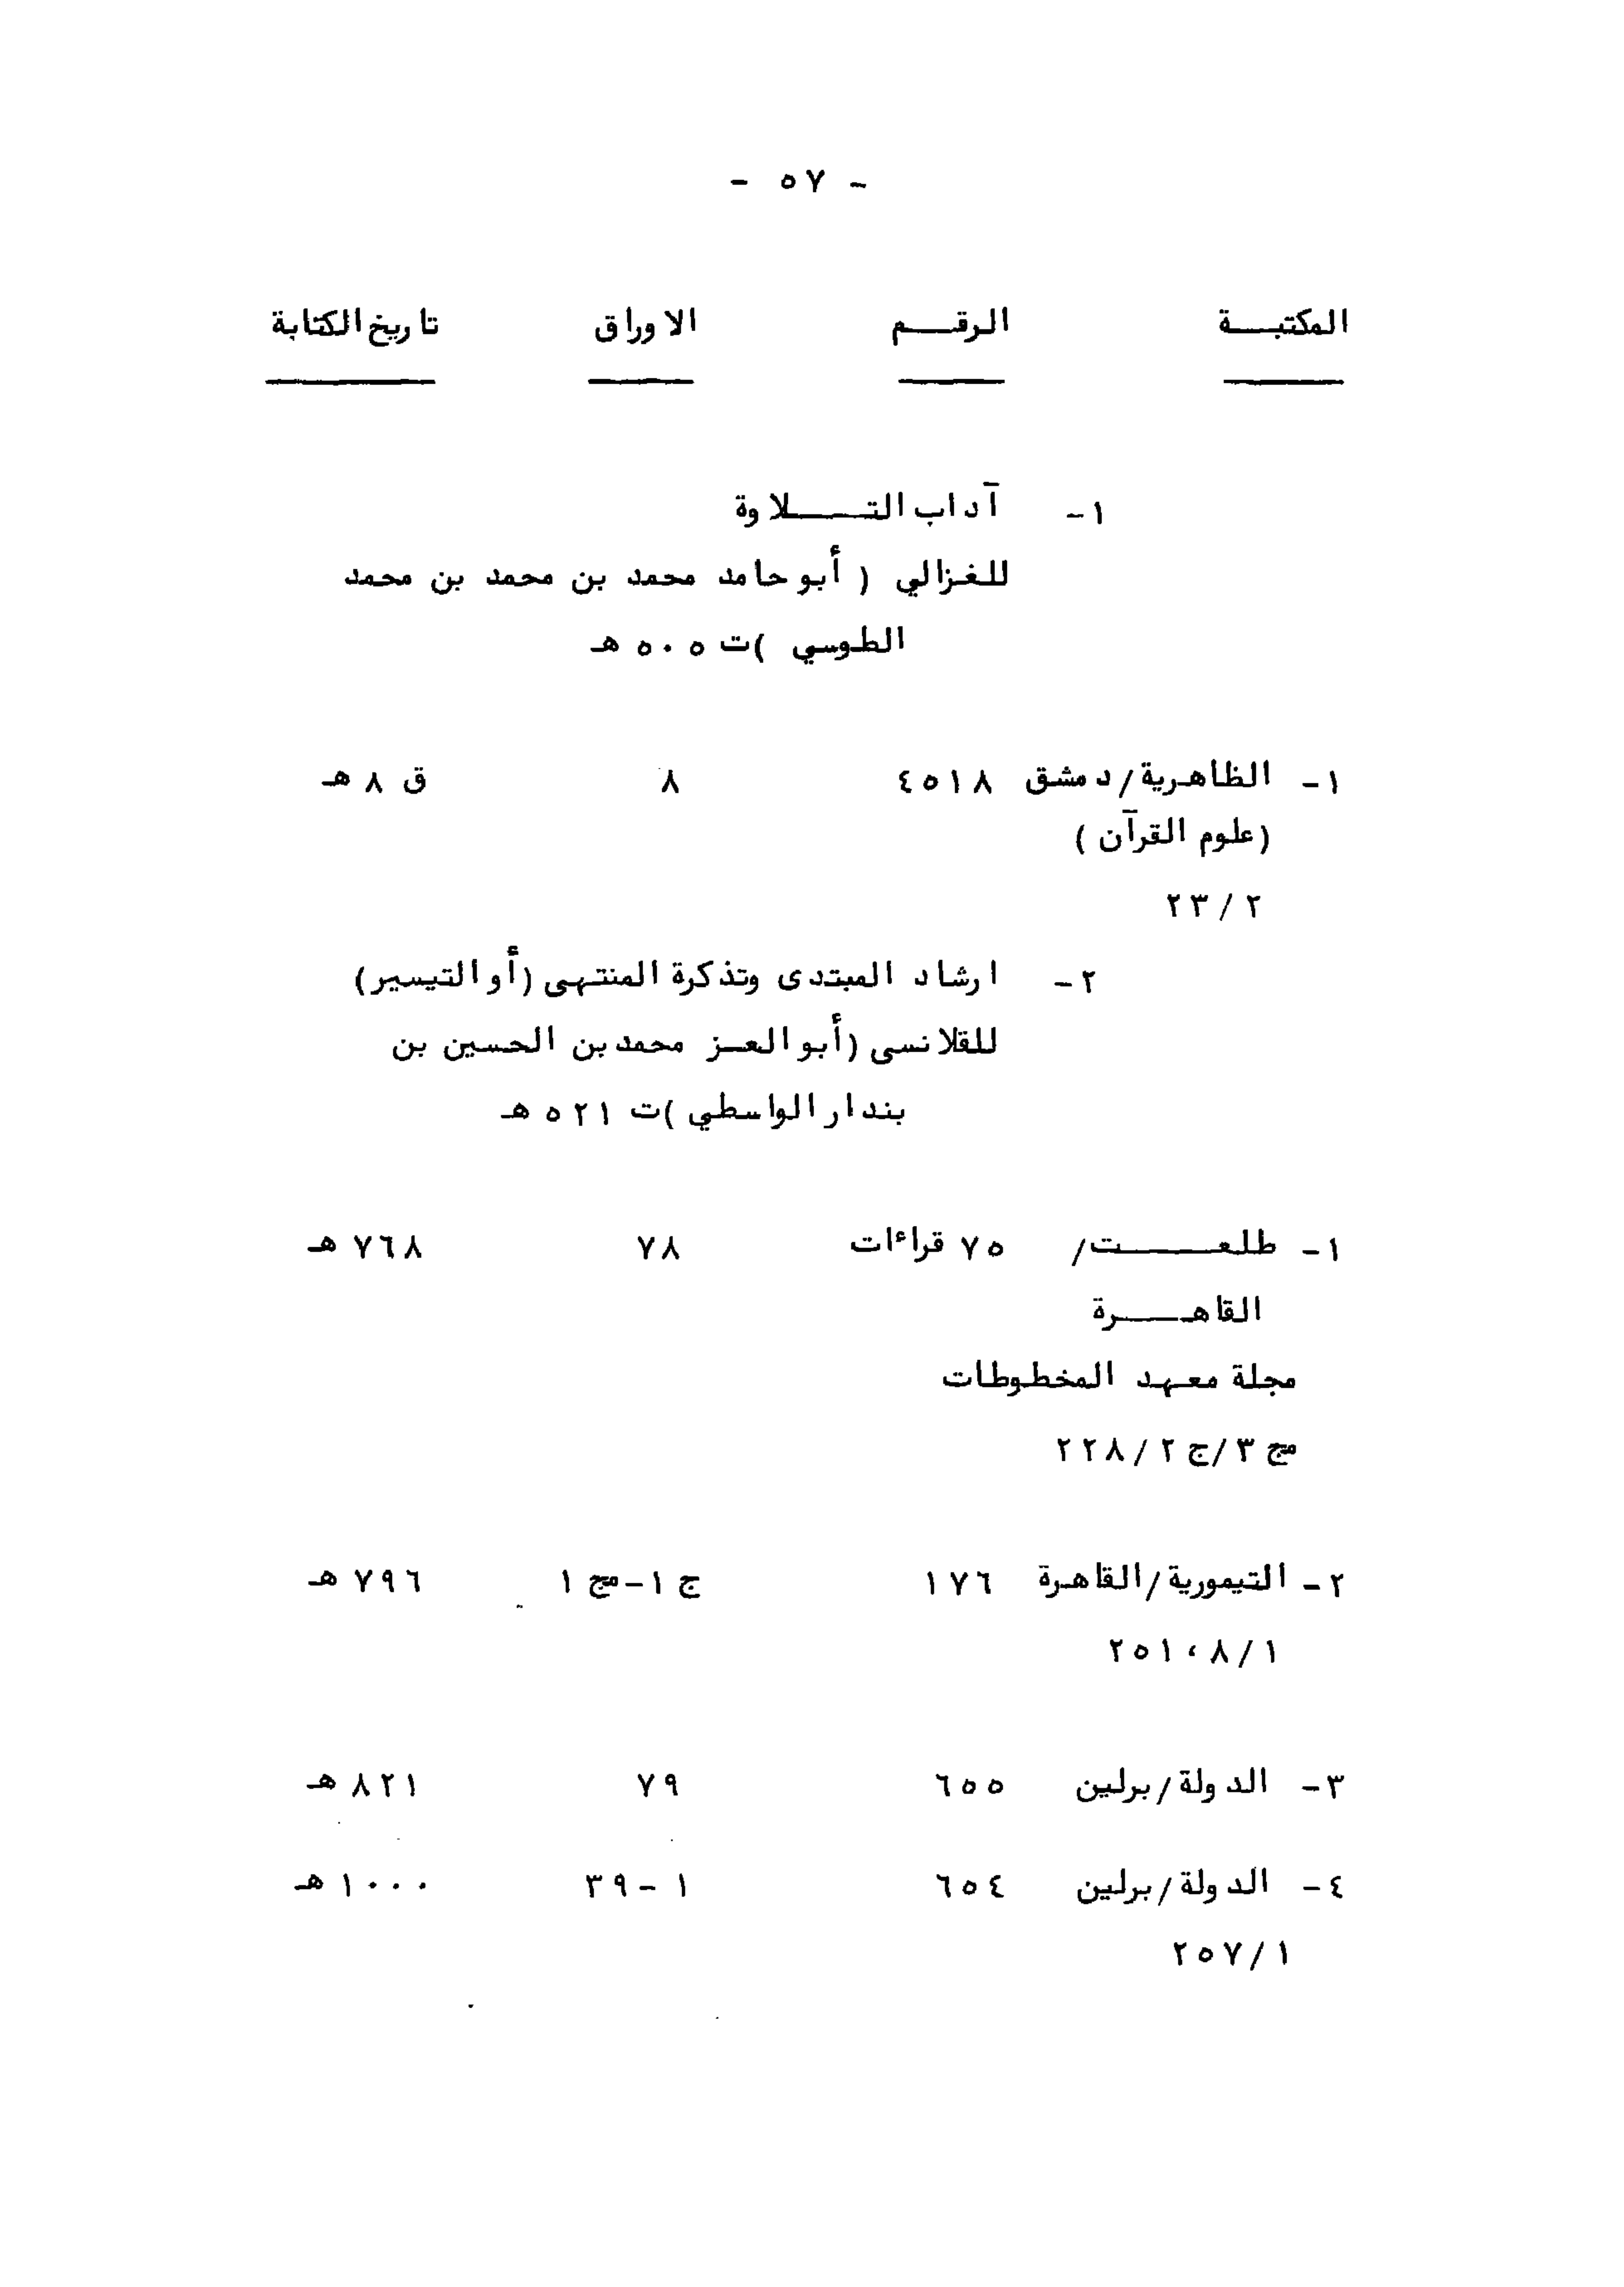 - ٥٧ -
المكتبة الرقم الاوراق تاريخ الكتابة
١- آداب التلاوة
للغزالي ( أبو حامد محمد بن محمد بن محمد
الطوسي )ت ٥٠٥ هـ
١- الظاهرية/دمشق ٤٥١٨ ٨ ق ٨ هـ
(علوم القرآن )
٢/ ٢٣
٢- ارشاد المبتدى وتذكرة المنتهى (أو التيسير)
للقلانسى (أبو العز محمد بن الحسين بن
بندار الواسطي )ت ٥٢١ هـ
١- طلعت/ ٧٥ قراءات ٧٨ ٧٦٨ هـ
القاهرة
مجلة معهد المخطوطات
مج ٣/ج ٢٢٨/٢
٢- التيمورية/القاهرة ١٧٦ ج ١-مج ١ ٧٩٦ هـ
١/ ٨ ، ٢٥١
٣- الدولة/برلين ٦٥٥ ٧٩ ٨٢١ هـ
٤- الدولة/برلين ٦٥٤ ١ -٣٩ ١٠٠٠ هـ
١/ ٢٥٧